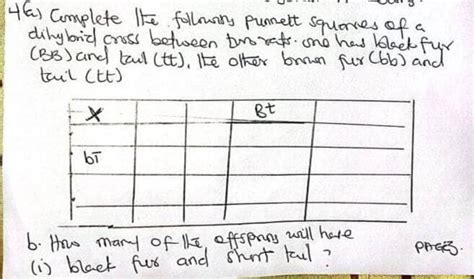 4(a) Complete the following punnett squares of a
dihybrid cross between two rats. one has black fur
(BB) and tail (tt), the other brown fur (bb) and
tail (tt)
X Bt
bT
b. How many of the offspring will have
(i) black fur and short tail ?
PAGE3.